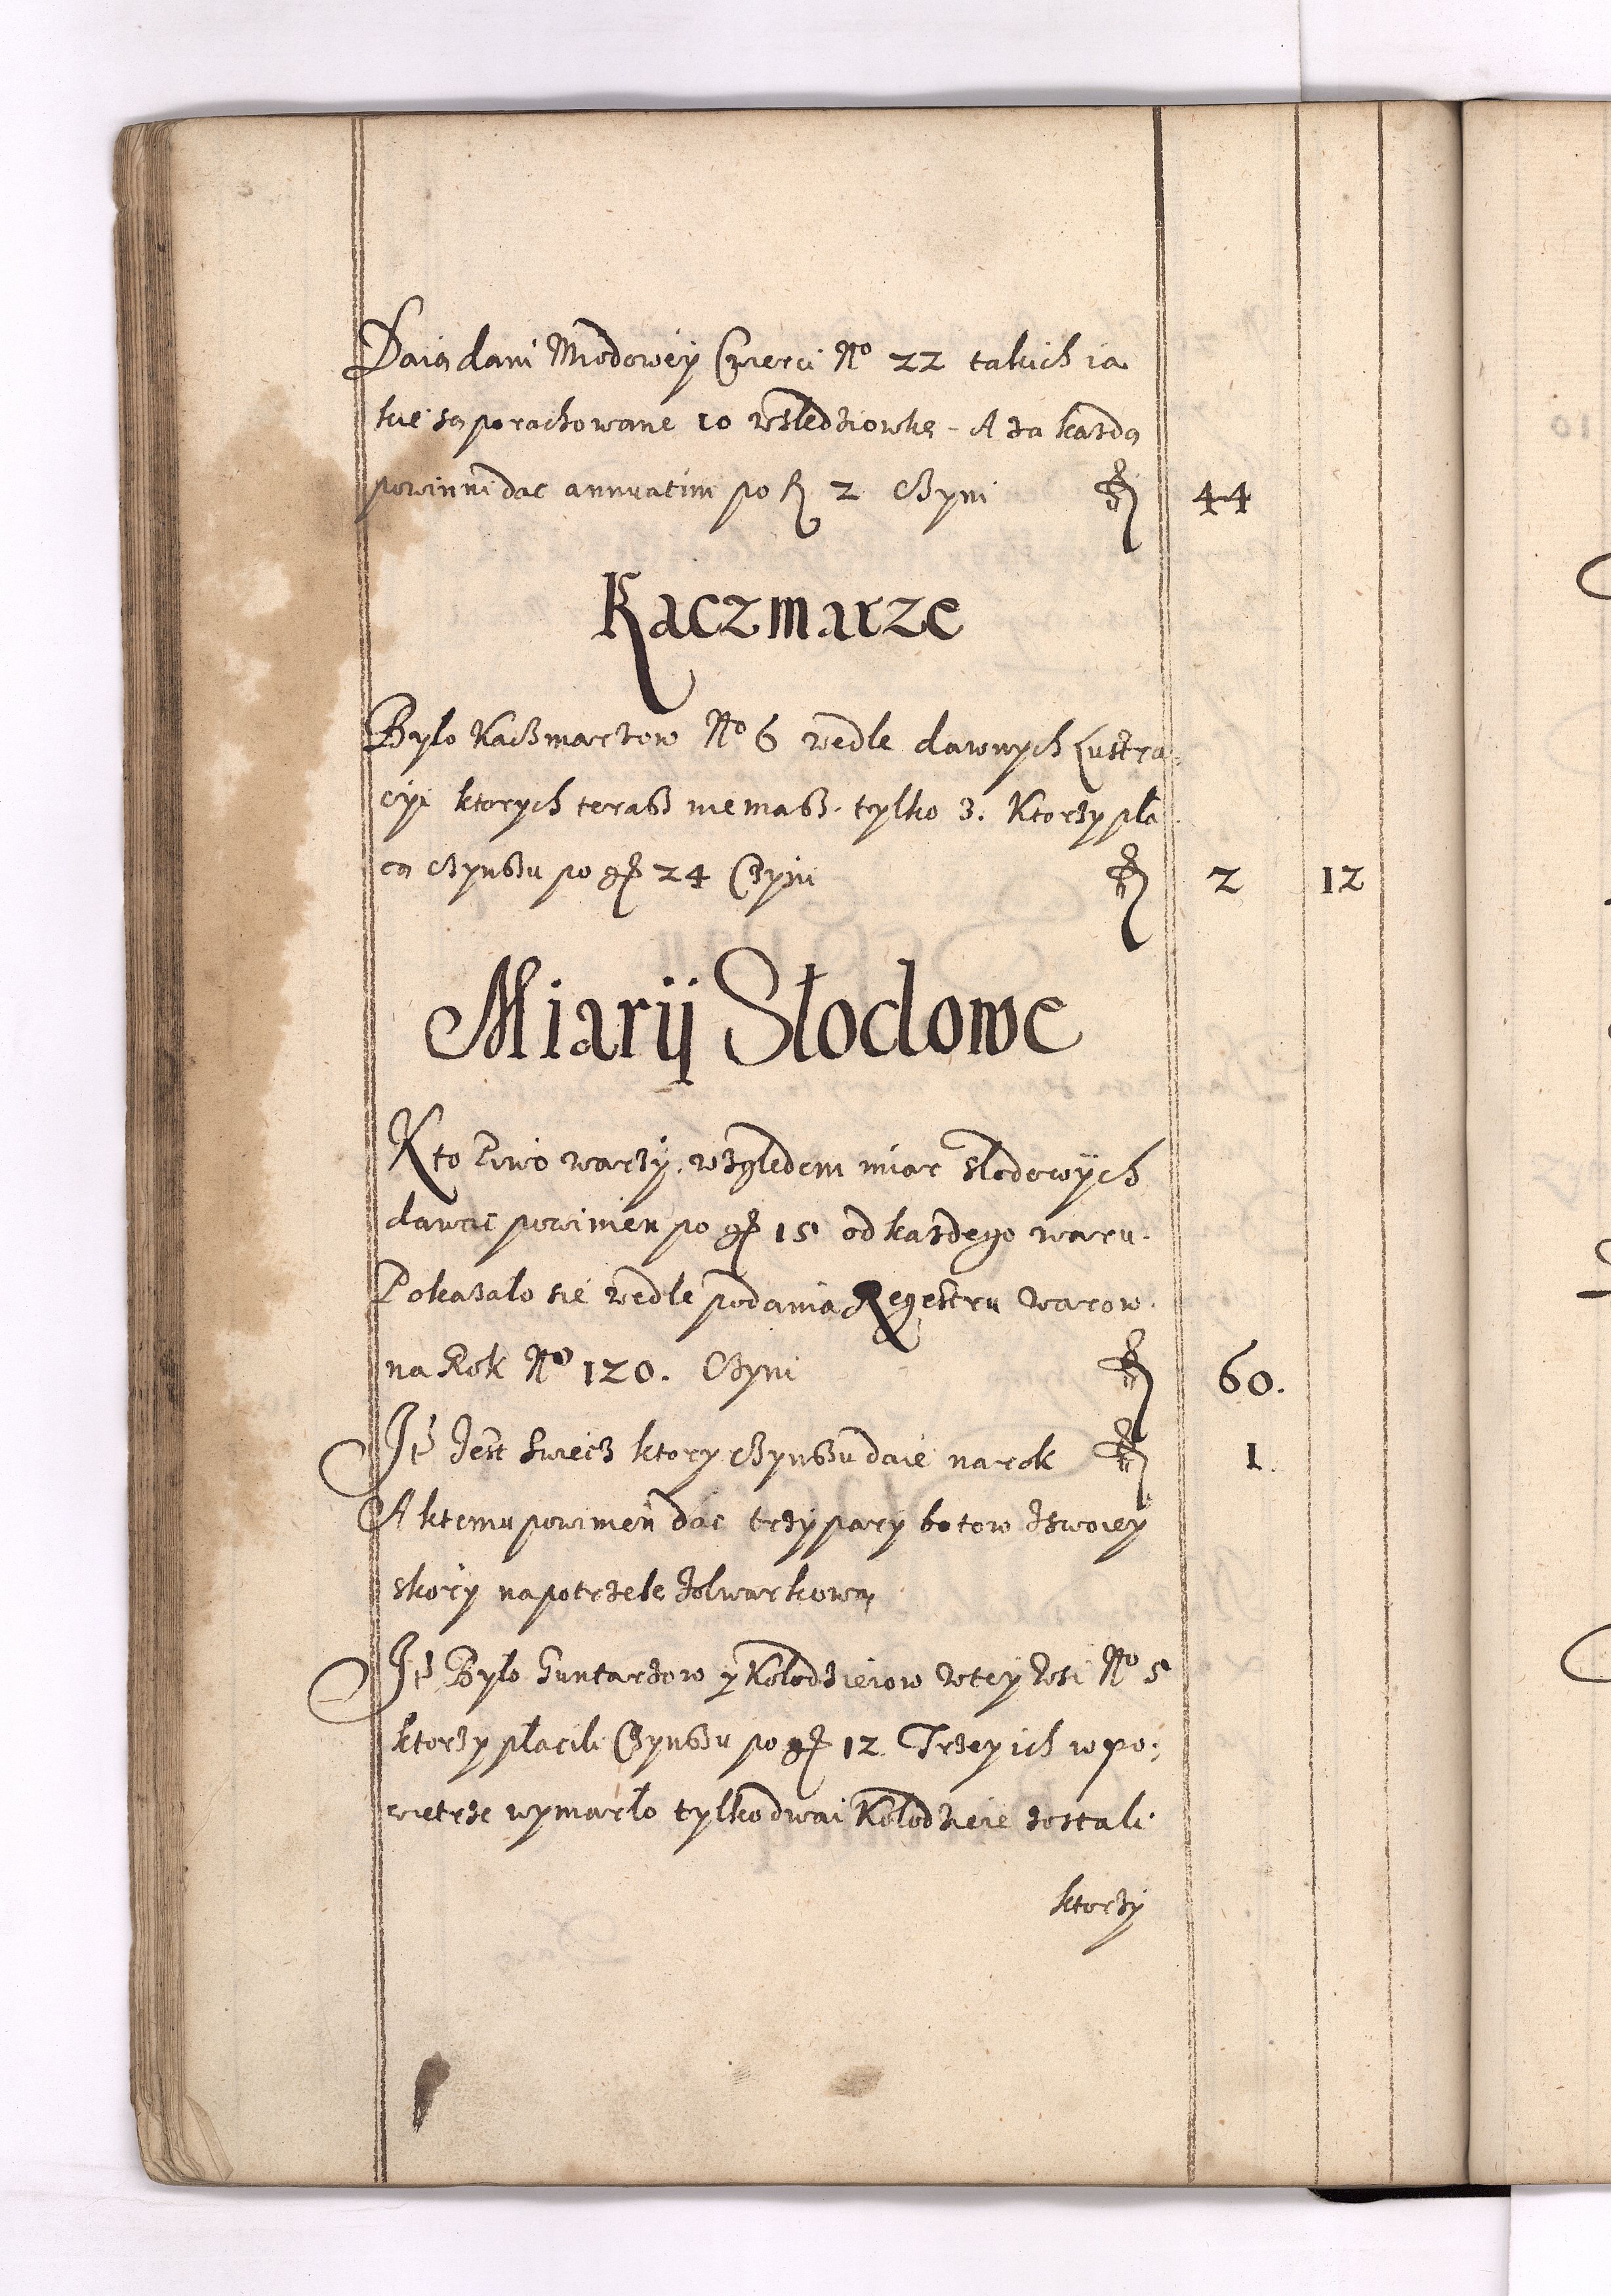 Daią dani Miodowey Czwierci No 22 takich ia
kie są porachowane 10 w Sledziowkę - A za kazdą
powinni dac annuatim po fl 2 czyni fl 44
Kaczmarze
Bylo Kaczmarzow No 6 wedle dawnych Lustra-
cyi ktorych terasz niemasz. tylko 3. Ktorzy pła
cą czynszu po gr 24 Czyni fl 2 12
Miarÿ Słodowe
Kto Piwo warzy, względem miar słodowych
dawac powinien po gr 15 od kazdego waru.
Pokazało sie wedle podania Regestru warow
na Rok No 120. Czyni fl 60.
Itẽ Jest Swiecz ktory czynszu daie na rok fl 1
A ktemu powinien dac trzy pary botow z swoiey
skory na potrzebę folwarkową
Itẽ Bylo Guntarzow y Kolodzieiow w tey Wsi No 5
ktorzy płacili Czynszu po gr 12 Trzey ich w po-
wietrze wymarło tylko dwai Kolodzieie zostali
ktorzy